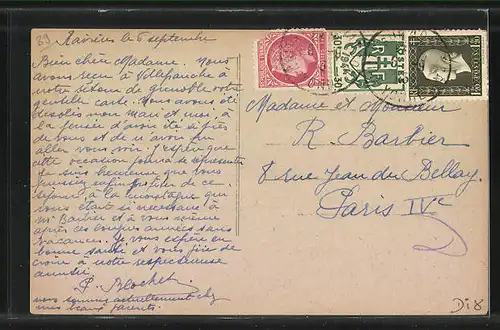 33
Raisins le 6 septembre
Bien chère Madame. Nous
avons reçu à Villefranche à
notre retour de Grenoble votre
gentille carte. Nous avons été
désolés mon Mari et moi, à
la pensée d'avoir été si près
de vous et de n'avoir pu
aller vous voir. J'espère que
cette occasion pourra se représenter
je suis heureuse que vous
puissiez enfin profiter de ce
séjour à la montagne qui
vous était si nécessaire à
Mr Barbier et à vous même
après ces longues années sans
vacances. Je vous espère en
bonne santé et vous prie de
croire à notre respectueuse
amitié
P. Blochet
nous sommes actuellement chez
mes beaux parents.
Madame et Monsieur
R. Barbier
8 rue Jean du Bellay
Paris IVe
POSTES
Di8